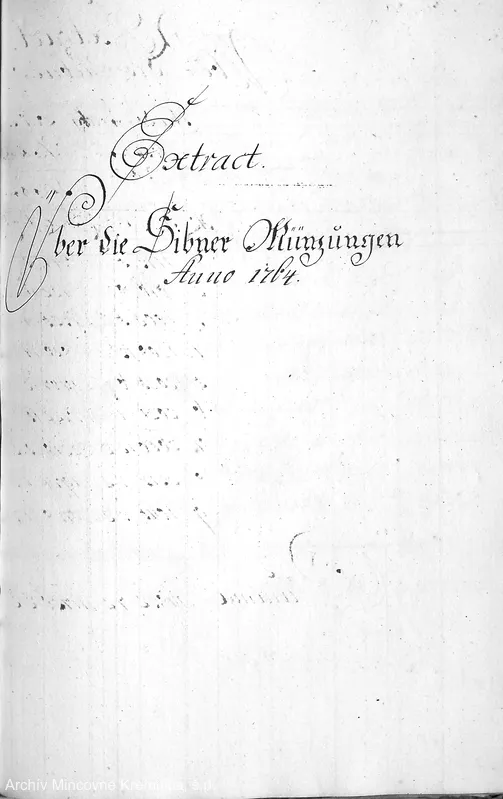 Extract.
Über die Sibner Münzungen
Anno 1764.
Archív Mincovne Kremnica, š.p.